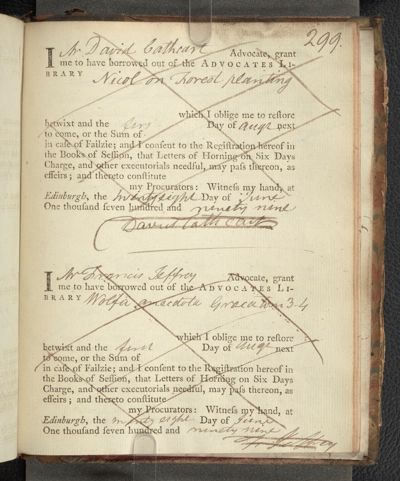 299.
I Mr David Cathcart Advocate, grant
me to have borrowed out of the ADVOCATES LI-
BRARY Nicol on Forest planting
which I oblige me to reſtore
betwixt and the first Day of Augt next
to come, or the Sum of
in caſe of Failzie; and I conſent to the Regiſtration hereof in
the Books of Seſſion, that Letters of Horning on Six Days
Charge, and other executorials needful, may paſs thereon, as
effeirs; and thereto conſtitute
my Procurators: Witneſs my hand, at
Edinburgh, the twenty eight Day of June
One thouſand ſeven hundred and ninety nine
David Cathcart
I Mr Francis Jeffrey Advocate, grant
me to have borrowed out of the ADVOCATES LI-
BRARY Wolfii Graeca 3-4
which I oblige me to reſtore
betwixt and the first Day of Augt next
to come, or the Sum of
in caſe of Failzie; and I conſent to the Regiſtration hereof in
the Books of Seſſion, that Letters of Horning on Six Days
Charge, and other executorials needful, may paſs thereon, as
effeirs; and thereto conſtitute
my Procurators: Witneſs my hand, at
Edinburgh, the eight Day of June
One thouſand ſeven hundred and ninety nine
Jeffrey